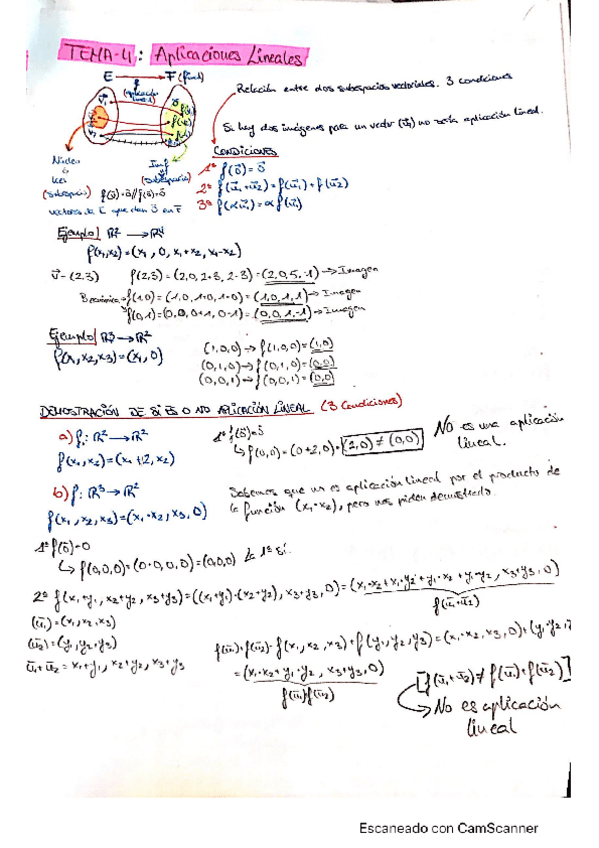 TEMA-4: Aplicaciones Lineales
E → F (final)
f
(aplicación lineal)
Relación entre dos subespacios vectoriales. 3 condiciones
Si hay dos imágenes para un vector (u⃗₁) no sería aplicación lineal.
Núcleo
o
Ker
(subespacio)
Imf
(subespacio)
f(0⃗)=0⃗ // f(u⃗)=0⃗
vectores de E que dan 0⃗ en F
CONDICIONES
1ª f(0⃗)=0⃗
2ª f(u⃗₁+u⃗₂)=f(u⃗₁)+f(u⃗₂)
3ª f(αu⃗₁)=αf(u⃗₁)
Ejemplo| ℝ² → ℝ⁴
f(x₁,x₂)=(x₁, 0, x₁+x₂, x₁-x₂)
v⃗-(2,3) f(2,3)=(2,0,2+3,2-3)=(2,0,5,-1)→Imagen
B canónica→f(1,0)=(1,0,1+0,1+0)=(1,0,1,1)→Imagen
f(0,1)=(0,0,0+1,0-1)=(0,0,1,-1)→Imagen
Ejemplo| ℝ³→ℝ²
f(x₁,x₂,x₃)=(x₁,0)
(1,0,0)→f(1,0,0)=(1,0)
(0,1,0)→f(0,1,0)=(0,0)
(0,0,1)→f(0,0,1)=(0,0)
DEMOSTRACIÓN DE SI ES O NO APLICACIÓN LINEAL (3 Condiciones)
a) f: ℝ²→ℝ²
f(x₁,x₂)=(x₁+2,x₂)
1ª f(0⃗)=0⃗
↳ f(0,0)=(0+2,0)=(2,0)≠(0,0)
No es una aplicación lineal.
b) f: ℝ³→ℝ²
f(x₁,x₂,x₃)=(x₁·x₂,x₃,0)
Sabemos que no es aplicación lineal por el producto de
la función (x₁·x₂), pero nos piden demostrarlo.
1ª f(0⃗)=0
↳ f(0,0,0)=(0·0,0,0)=(0,0,0) La 1ª sí.
2ª f(x₁+y₁, x₂+y₂, x₃+y₃)=((x₁+y₁)·(x₂+y₂), x₃+y₃,0)=(x₁·x₂+x₁·y₂+y₁·x₂+y₁·y₂, x₃+y₃,0)
f(u⃗₁+u⃗₂)
(u⃗₁)=(x₁,x₂,x₃)
(u⃗₂)=(y₁,y₂,y₃)
u⃗₁+u⃗₂=x₁+y₁, x₂+y₂, x₃+y₃
f(u⃗₁)+f(u⃗₂)=f(x₁,x₂,x₃)+f(y₁,y₂,y₃)=(x₁·x₂,x₃,0)+(y₁·y₂,
=(x₁·x₂+y₁·y₂, x₃+y₃,0)
f(u⃗₁)f(u⃗₂)
[f(u⃗₁+u⃗₂)≠f(u⃗₁)+f(u⃗₂)]
→ No es aplicación lineal
Escaneado con CamScanner